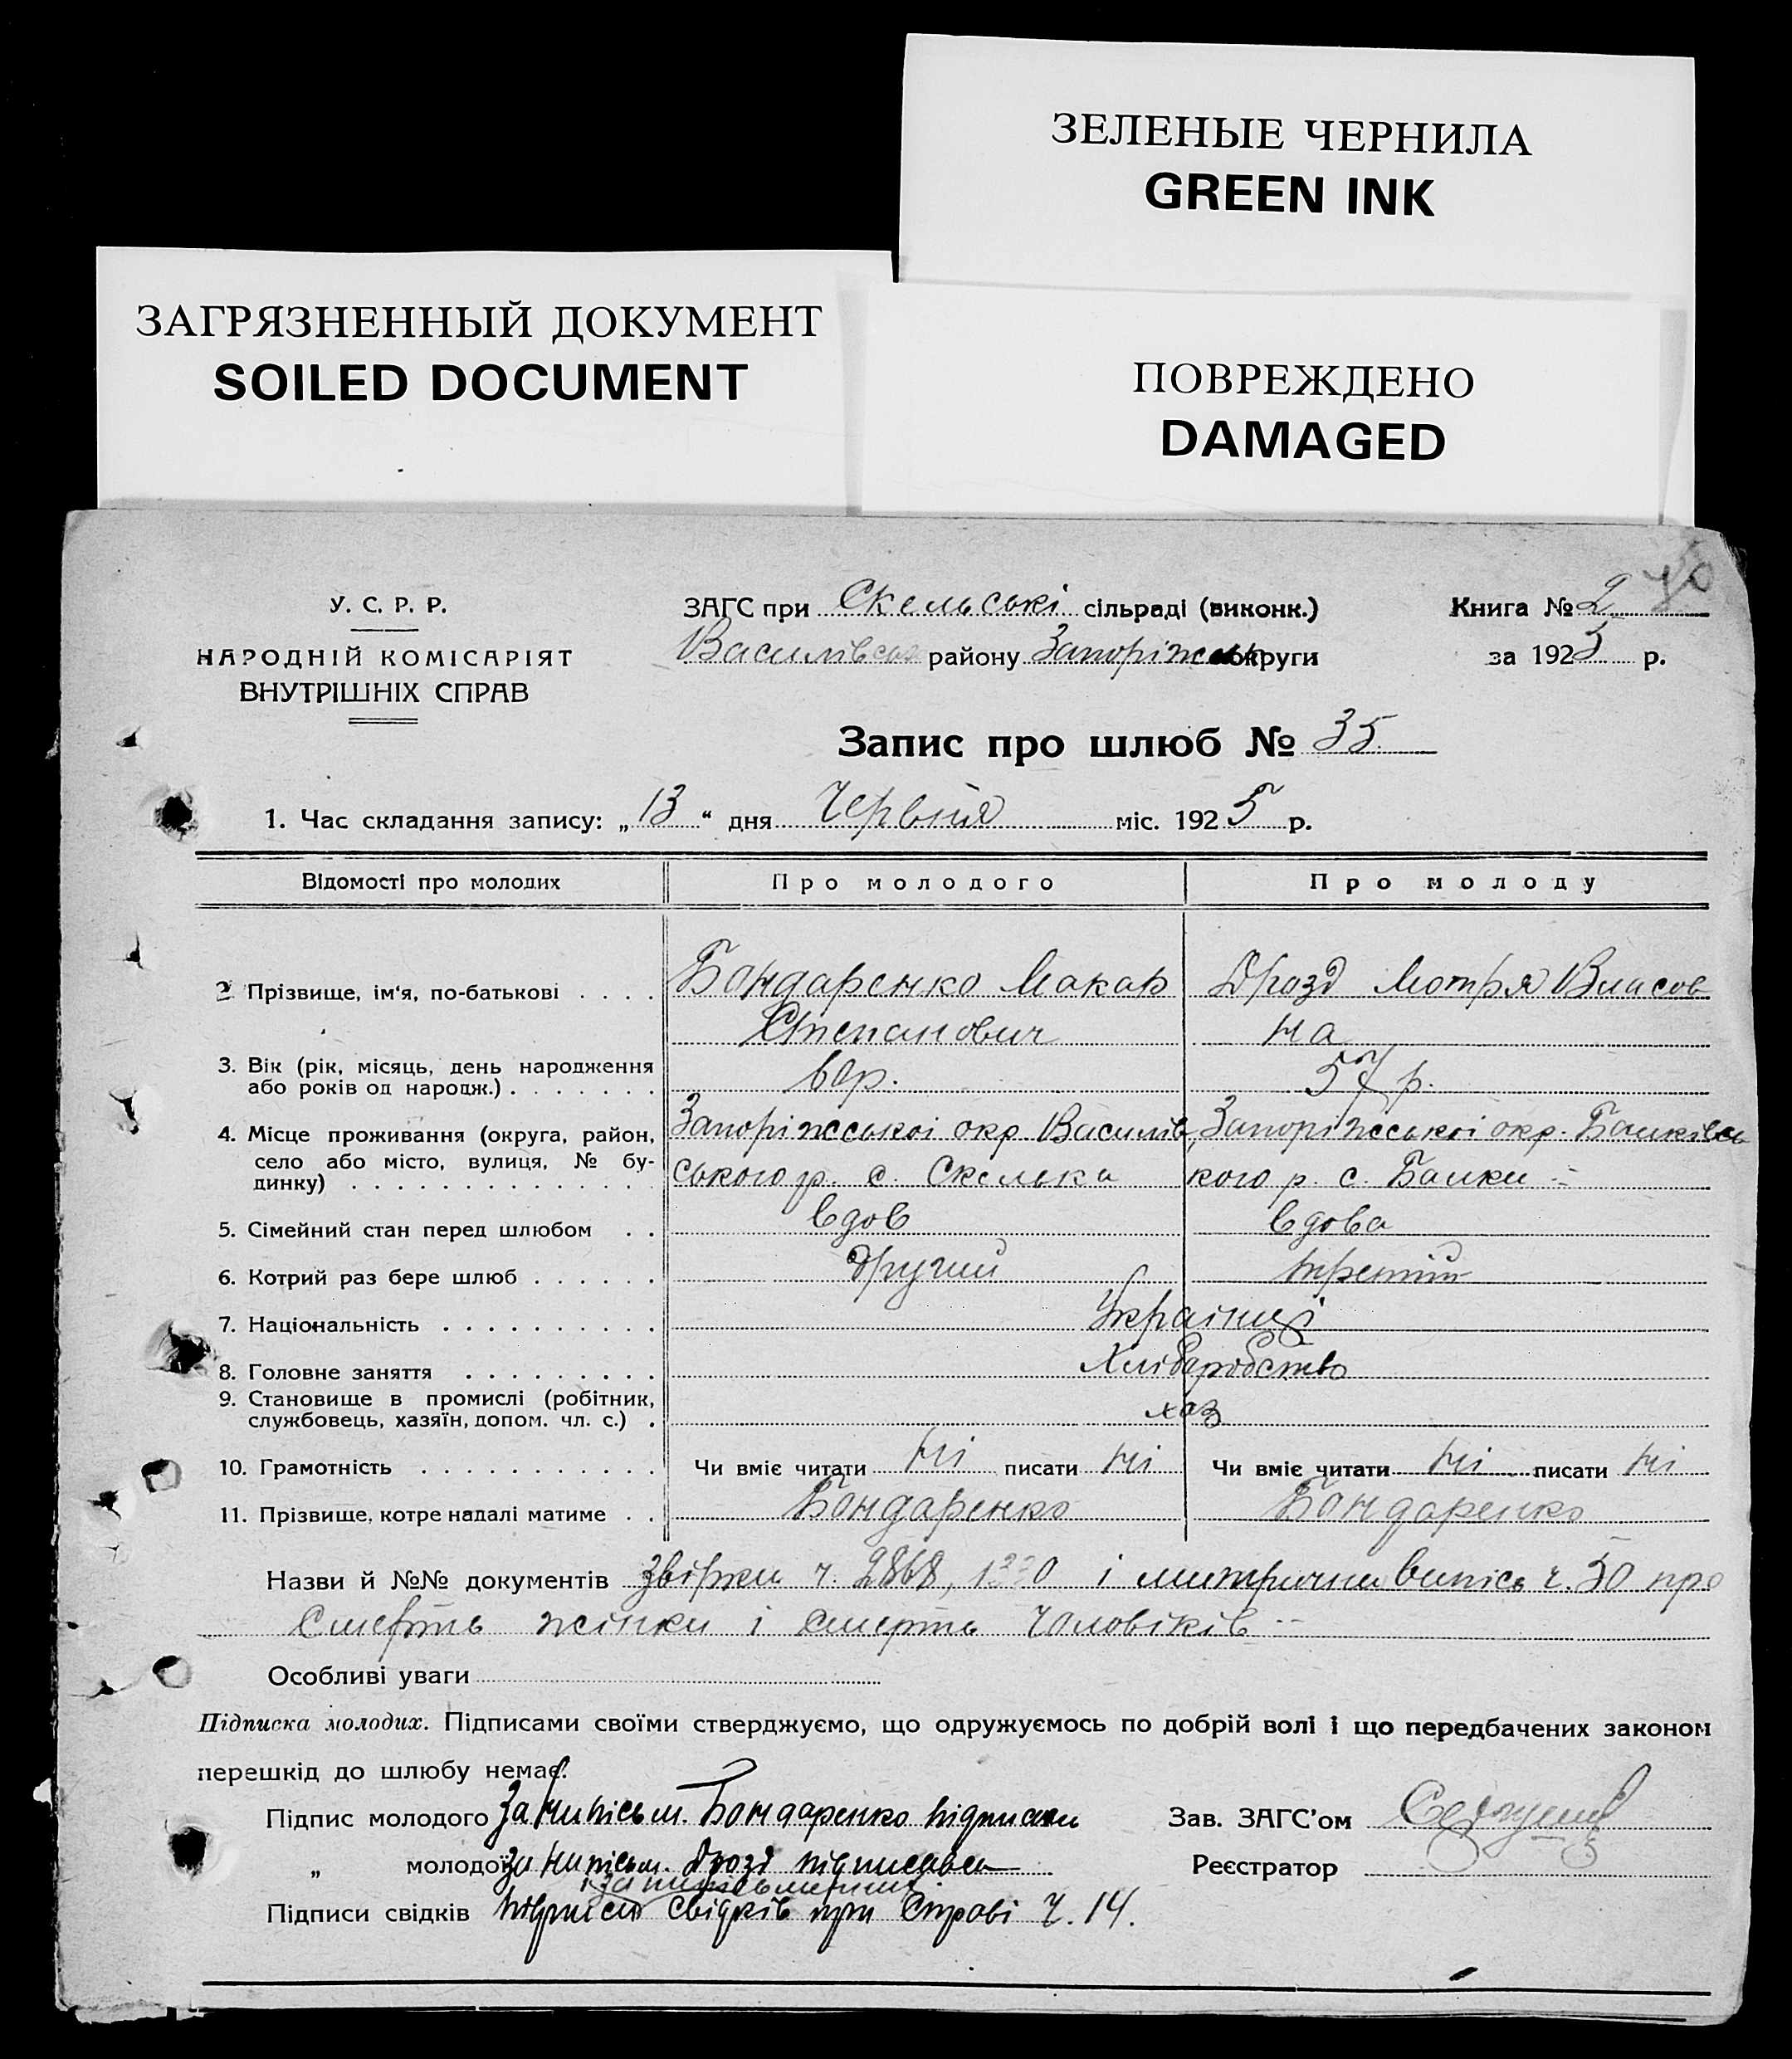 ЗЕЛЕНЫЕ ЧЕРНИЛА
GREEN INK
ЗАГРЯЗНЕННЫЙ ДОКУМЕНТ
SOILED DOCUMENT
ПОВРЕЖДЕНО
DAMAGED
У. С. Р. Р.
НАРОДНІЙ КОМІСАРІЯТ
ВНУТРІШНІХ СПРАВ
ЗАГС при Скельскі сільраді (виконк.)
Василівськ району Запоріжськ округи
Книга № 2
за 1925 р.
Запис про шлюб № 35
1. Час складання запису: „13“ дня Червня міс. 1925 р.
Відомості про молодих Про молодого Про молоду
2. Прізвище, ім'я, по-батькові . . . . Бондаренко Макар Дрозд Мотря Власов
Степанович на
3. Вік (рік, місяць, день народження
або років од народж.) . . . . . . . 60р. 57 р.
4. Місце проживання (округа, район, Запоріжської окр. Василів Запоріжської окр. Балківсь
село або місто, вулиця, № бу-
динку) . . . . . . . . . . . . . . ського р. с. Скелька кого р. с. Балки
5. Сімейний стан перед шлюбом . . вдов вдова
6. Котрий раз бере шлюб . . . . . . другий третій
7. Національність . . . . . . . . . . . Українці
8. Головне заняття . . . . . . . . . . Хліборобство
9. Становище в промислі (робітник,
службовець, хазяїн, допом. чл. с.) . хаз
10. Грамотність . . . . . . . . . . . . Чи вміє читати ні писати ні Чи вміє читати ні писати ні
11. Прізвище, котре надалі матиме . . Бондаренко Бондаренко
Назви й №№ документів звірки ч. 2868, і митрични випісь ч. 50 про
Смерть жінки і смерть чоловіків
Особливі уваги
Підписка молодих. Підписами своїми стверджуємо, що одружуємось по добрій волі і що передбачених законом
перешкід до шлюбу немає.
Підпис молодого За нипісьм. Бондаренко підписав Зав. ЗАГС'ом
„ молодої за нипісьм. Дрозд підписався Реєстратор
Підписи свідків Підписи свідків при Справі Ч. 14.